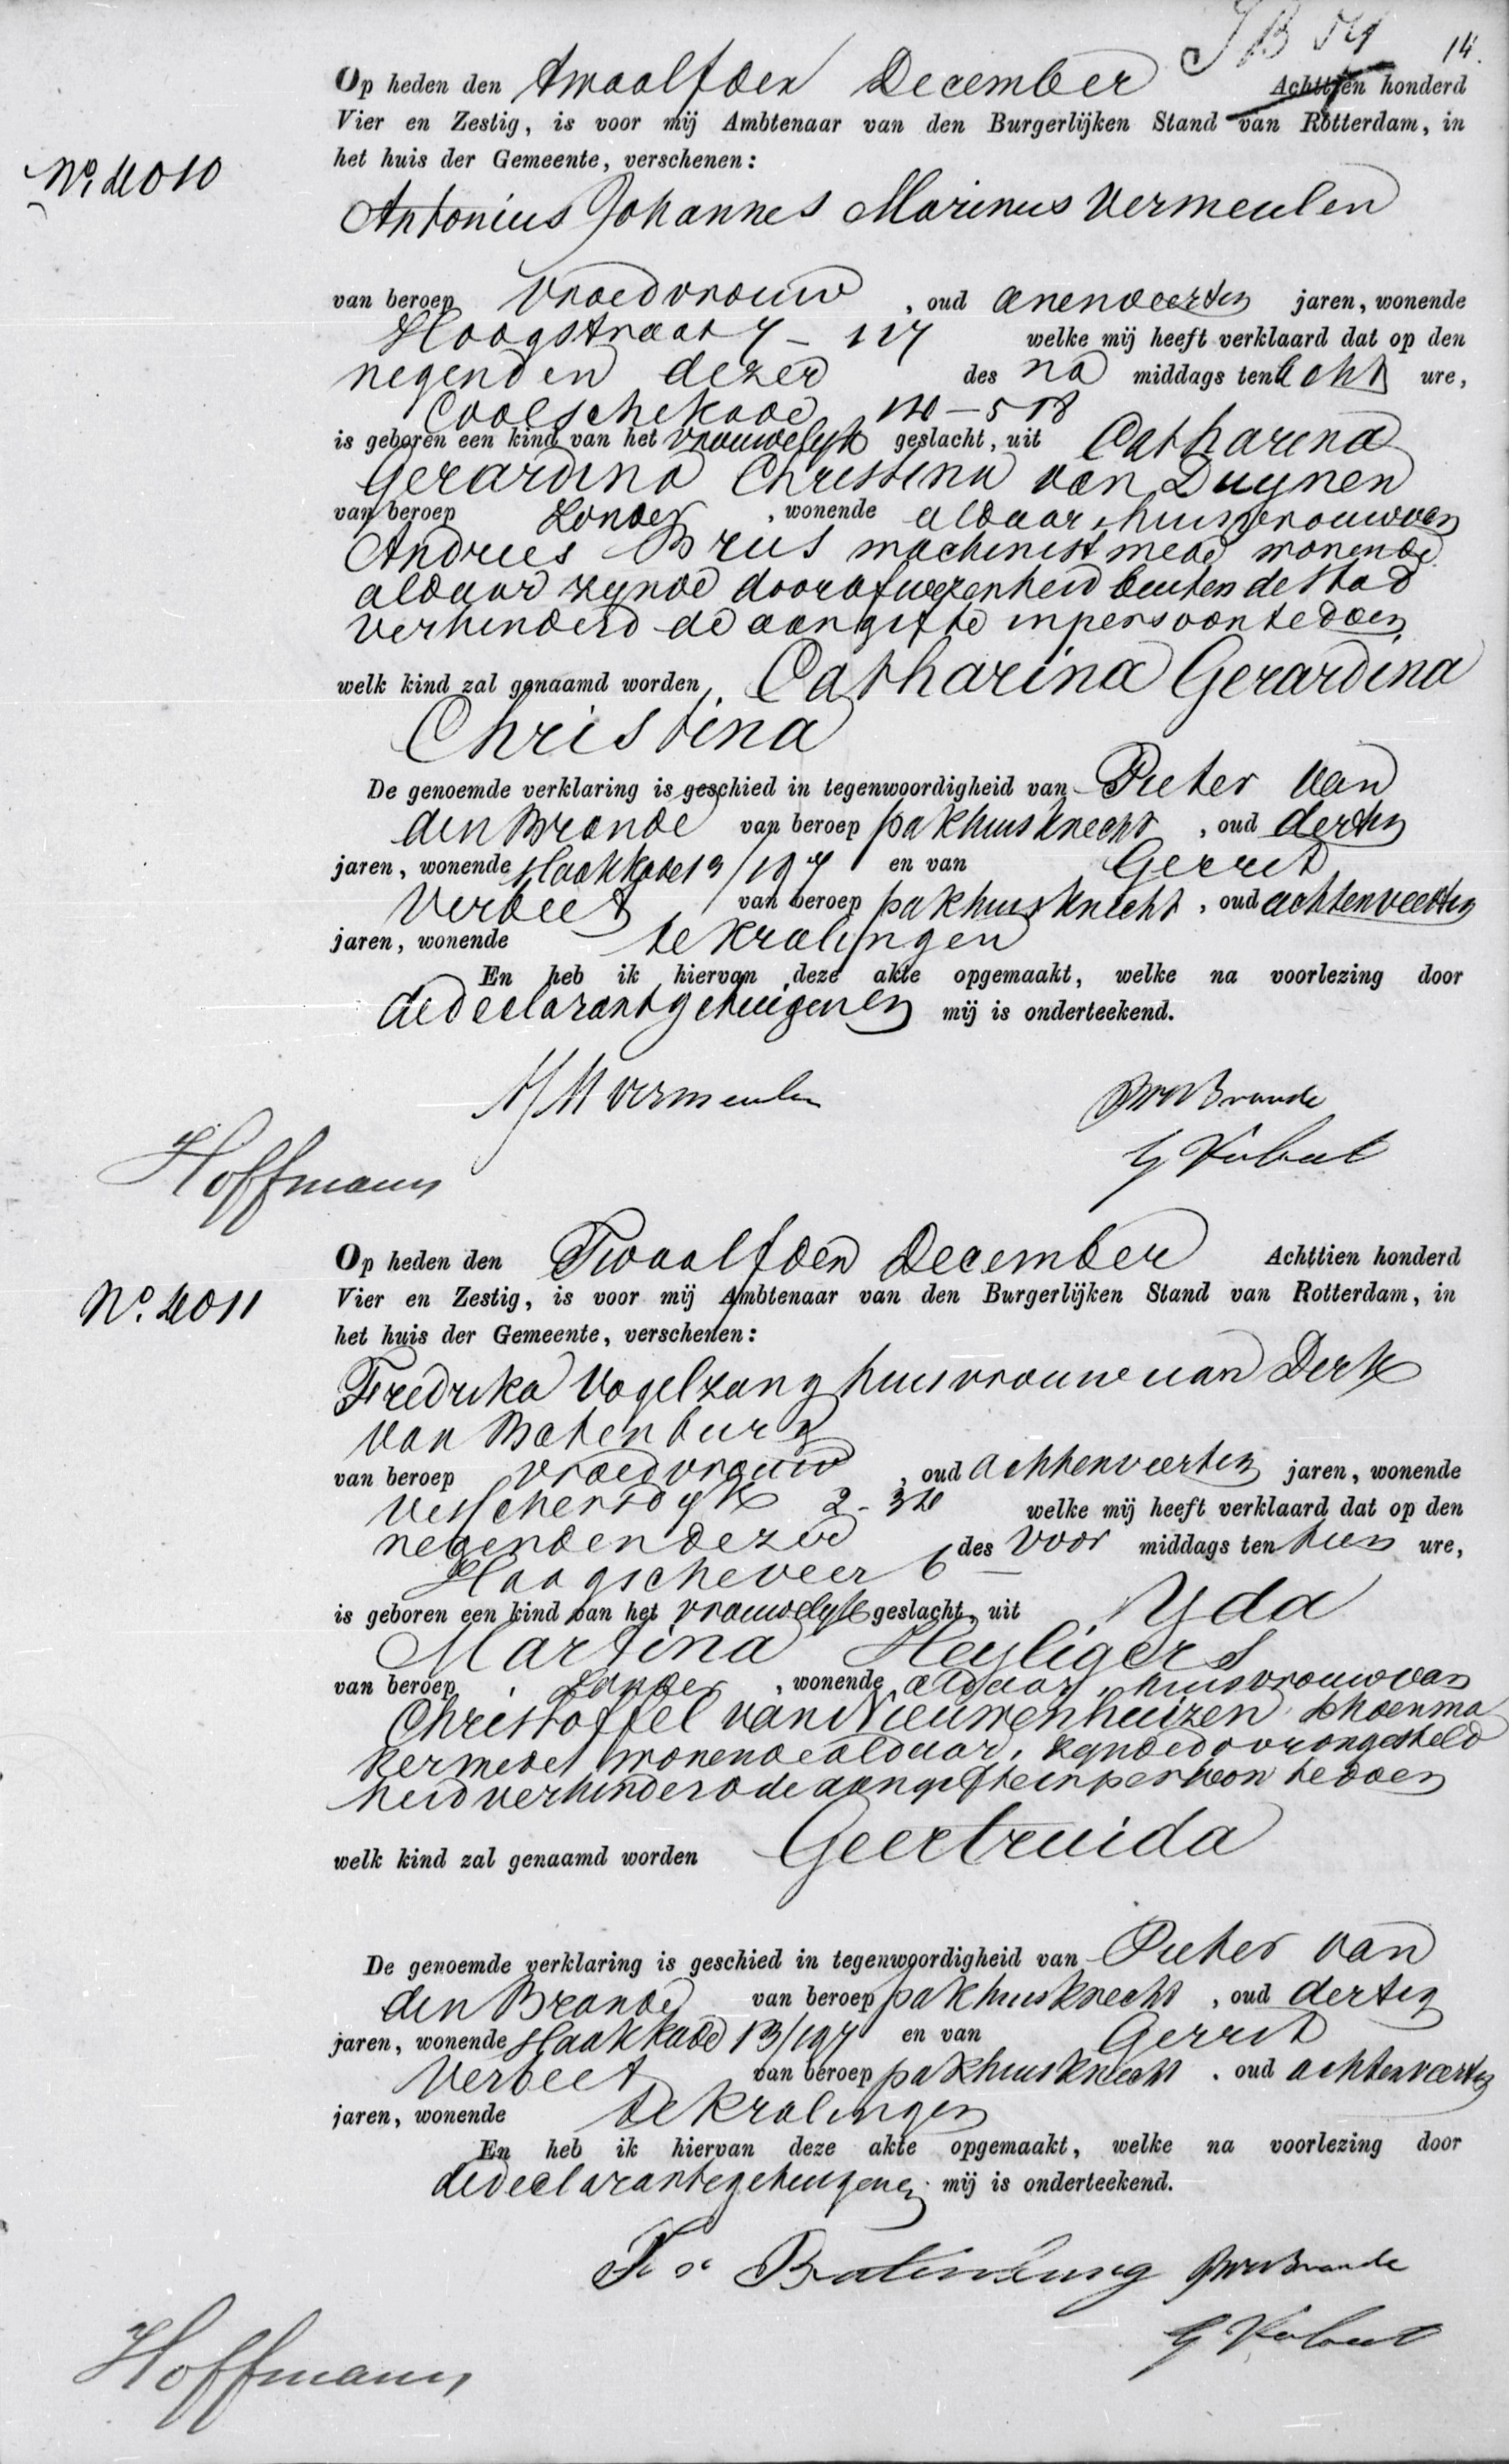 14.
Op heden den twaalfden December Achttien honderd
Vier en Zestig, is voor mij Ambtenaar van den Burgerlijken Stand van Rotterdam, in
No. 4010
het huis der Gemeente, verschenen:
Antonius Johannes Marinus Vermeulen
van beroep Vroedvrouw, oud eenenveertig jaren, wonende
Hoogstraat 7 - 117 welke mij heeft verklaard dat op den
negenden dezer des na middags ten acht ure,
Coolschekade 140 - 518
is geboren een kind van het vrouwelyk geslacht, uit Catharina
Gerardina Christina van Duynen
van beroep Zonder, wonende aldaar, huisvrouw van
Andries Brus machinist mede wonende
aldaar zynde door afwezenheid buiten de stad
verhinderd de aangifte in persoon te doen
welk kind zal genaamd worden, Catharina Gerardina
Christina
De genoemde verklaring is geschied in tegenwoordigheid van Pieter van
den Brande van beroep pakhuisknecht, oud dertig
jaren, wonende Slaakkade 13/197 en van Gerrit
Verbeet van beroep pakhuisknecht, oud achtenveertig
jaren, wonende te Kralingen
En heb ik hiervan deze akte opgemaakt, welke na voorlezing door
de declarant getuigen en mij is onderteekend.
AJM Vermeulen PvdBrande
G Verbeet
Hoffmann
Op heden den Twaalfden December Achttien honderd
No. 4011
Vier en Zestig, is voor mij Ambtenaar van den Burgerlijken Stand van Rotterdam, in
het huis der Gemeente, verschenen:
Fredrika Vogelzang huisvrouw van Derk
van Batenburg
van beroep vroedvrouw, oud achtenveertig jaren, wonende
Visschersdyk 2 - 34 welke mij heeft verklaard dat op den
negenden dezer des voor middags ten tien ure,
Hoogscheveer 6 -
is geboren een kind van het vrouwelyk geslacht, uit Yda
Martina Heyligers
van beroep Zonder, wonende aldaar, huisvrouw van
Christoffel van Nieuwenhuizen schoenma
ker mede wonende aldaar, zynde door ongesteld
heid verhinderd de aangifte in persoon te doen
welk kind zal genaamd worden Geertruida
De genoemde verklaring is geschied in tegenwoordigheid van Pieter van
den Brande van beroep pakhuisknecht, oud dertig
jaren, wonende Slaakkade 13/197 en van Gerrit
Verbeet van beroep pakhuisknecht, oud achtenveertig
jaren, wonende te Kralingen
En heb ik hiervan deze akte opgemaakt, welke na voorlezing door
de declarante getuigen en mij is onderteekend.
Batenburg PvdBrande
G Verbeet
Hoffmann